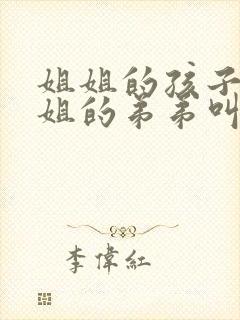 姐姐的孩子
姐的弟弟叫
李偉紅